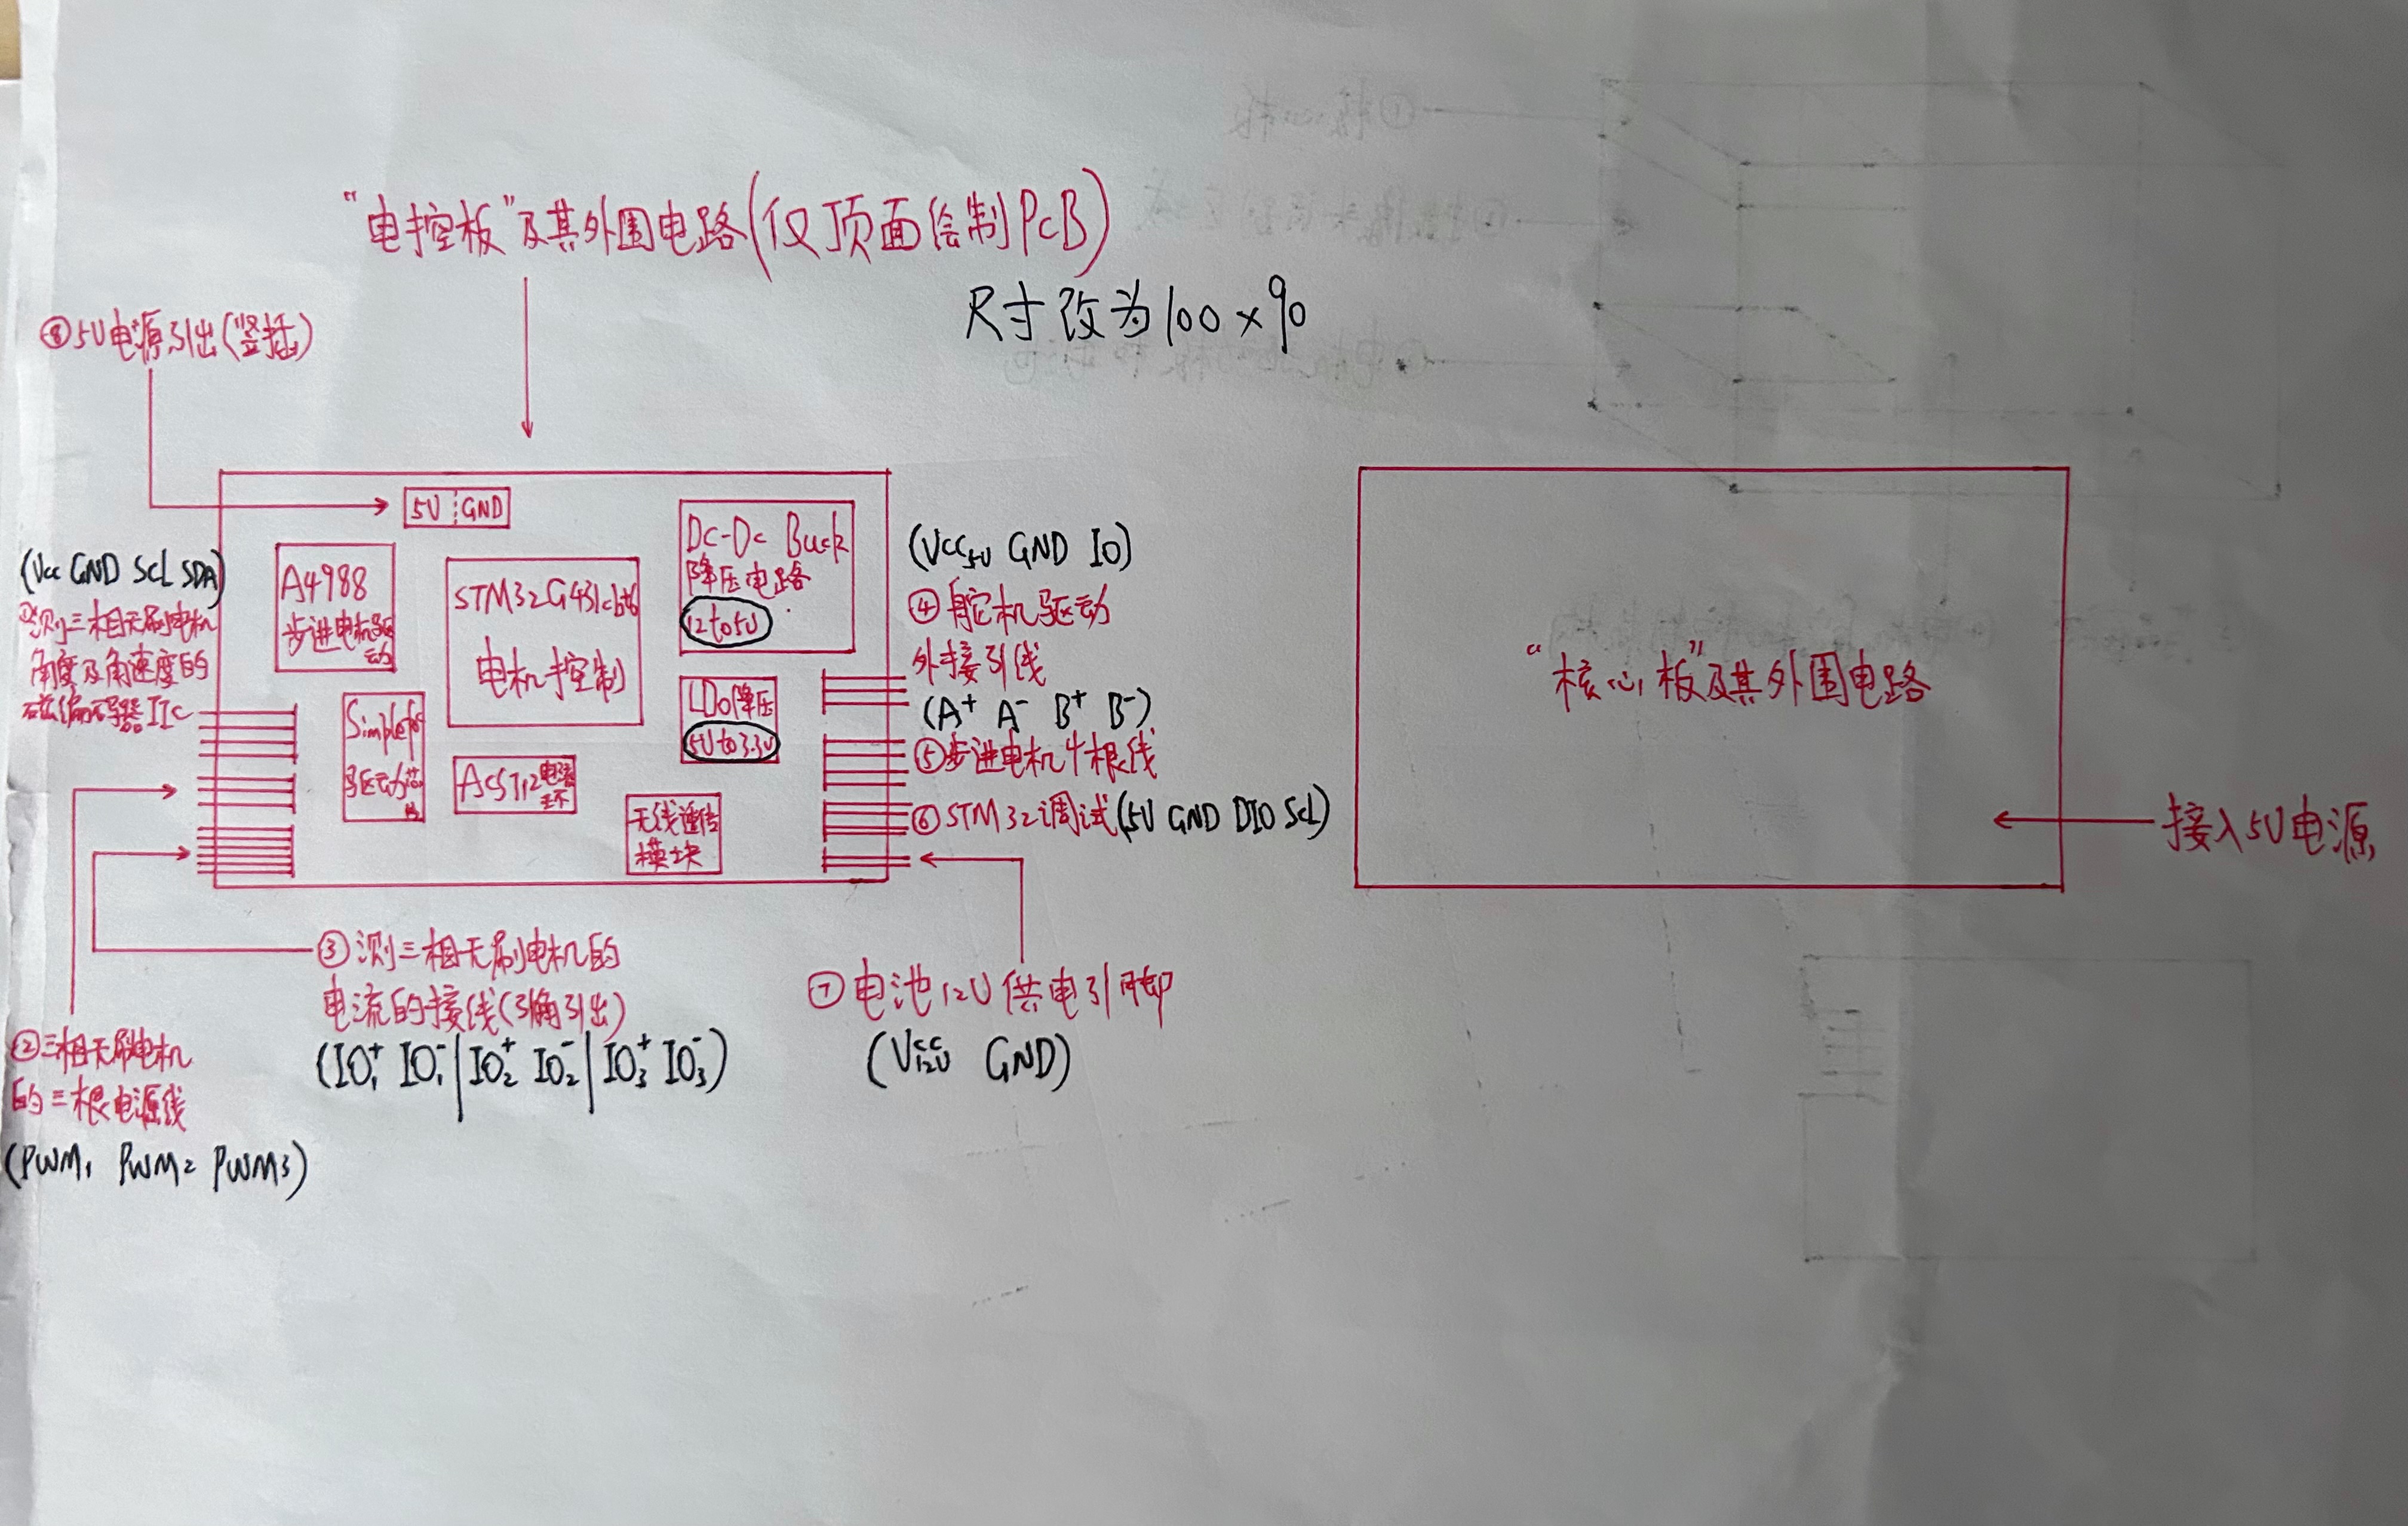 “电控板”及其外围电路(仅顶面绘制PCB)
尺寸改为100×90
⑧5V电源引出(竖插)
5V GND
(Vcc GND SCL SDA)
①测三相无刷电机
角度及角速度的
磁编码器IIC
A4988
步进电机驱
动
STM32G431cbt6
电机控制
DC-DC Buck
降压电路
12to5V
LDO降压
5Vto3.3V
Simplefoc
驱动芯
片
ACS712电流
环
无线透传
模块
(VCC5V GND IO)
④舵机驱动
外接引线
(A+ A- B+ B-)
⑤步进电机4根线
⑥STM32调试(5V GND DIO SCL)
③测三相无刷电机的
电流的接线(引角引出)
(IO1+ IO1-|IO2+ IO2-|IO3+ IO3-)
⑦电池12V供电引脚
(Vcc12V GND)
②三相无刷电机
的三根电源线
(PWM1 PWM2 PWM3)
“核心板”及其外围电路
接入5V电源